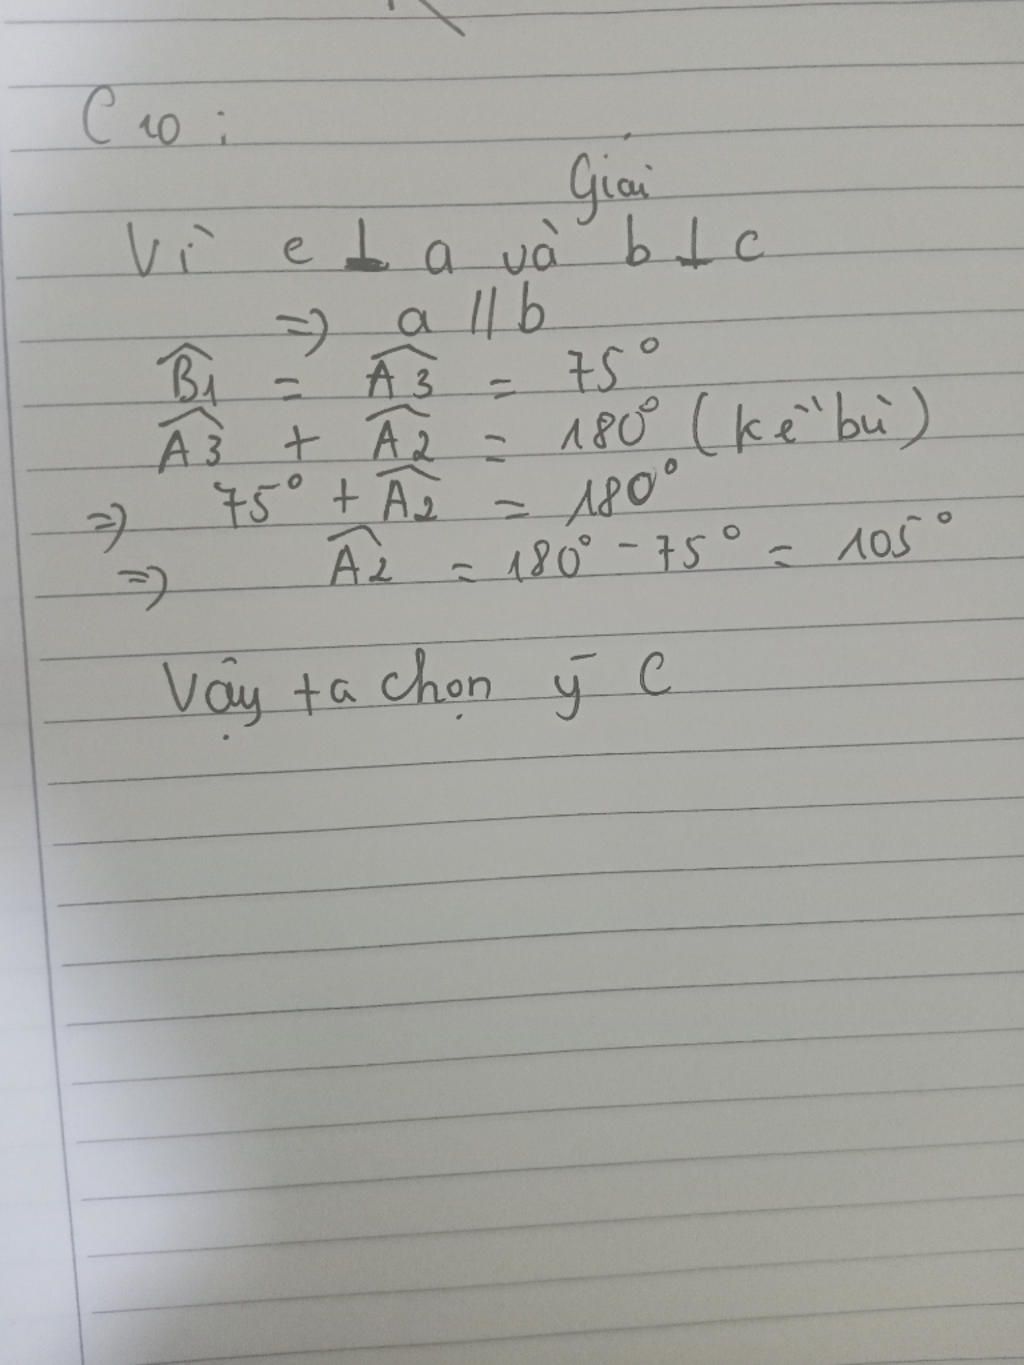 C10:
Giải
Vì e ⊥ a và b ⊥ c
=> a // b
B̂1 = Â3 = 75°
Â3 + Â2 = 180° (kề bù)
=> 75° + Â2 = 180°
=> Â2 = 180° - 75° = 105°
Vậy ta chọn ý C